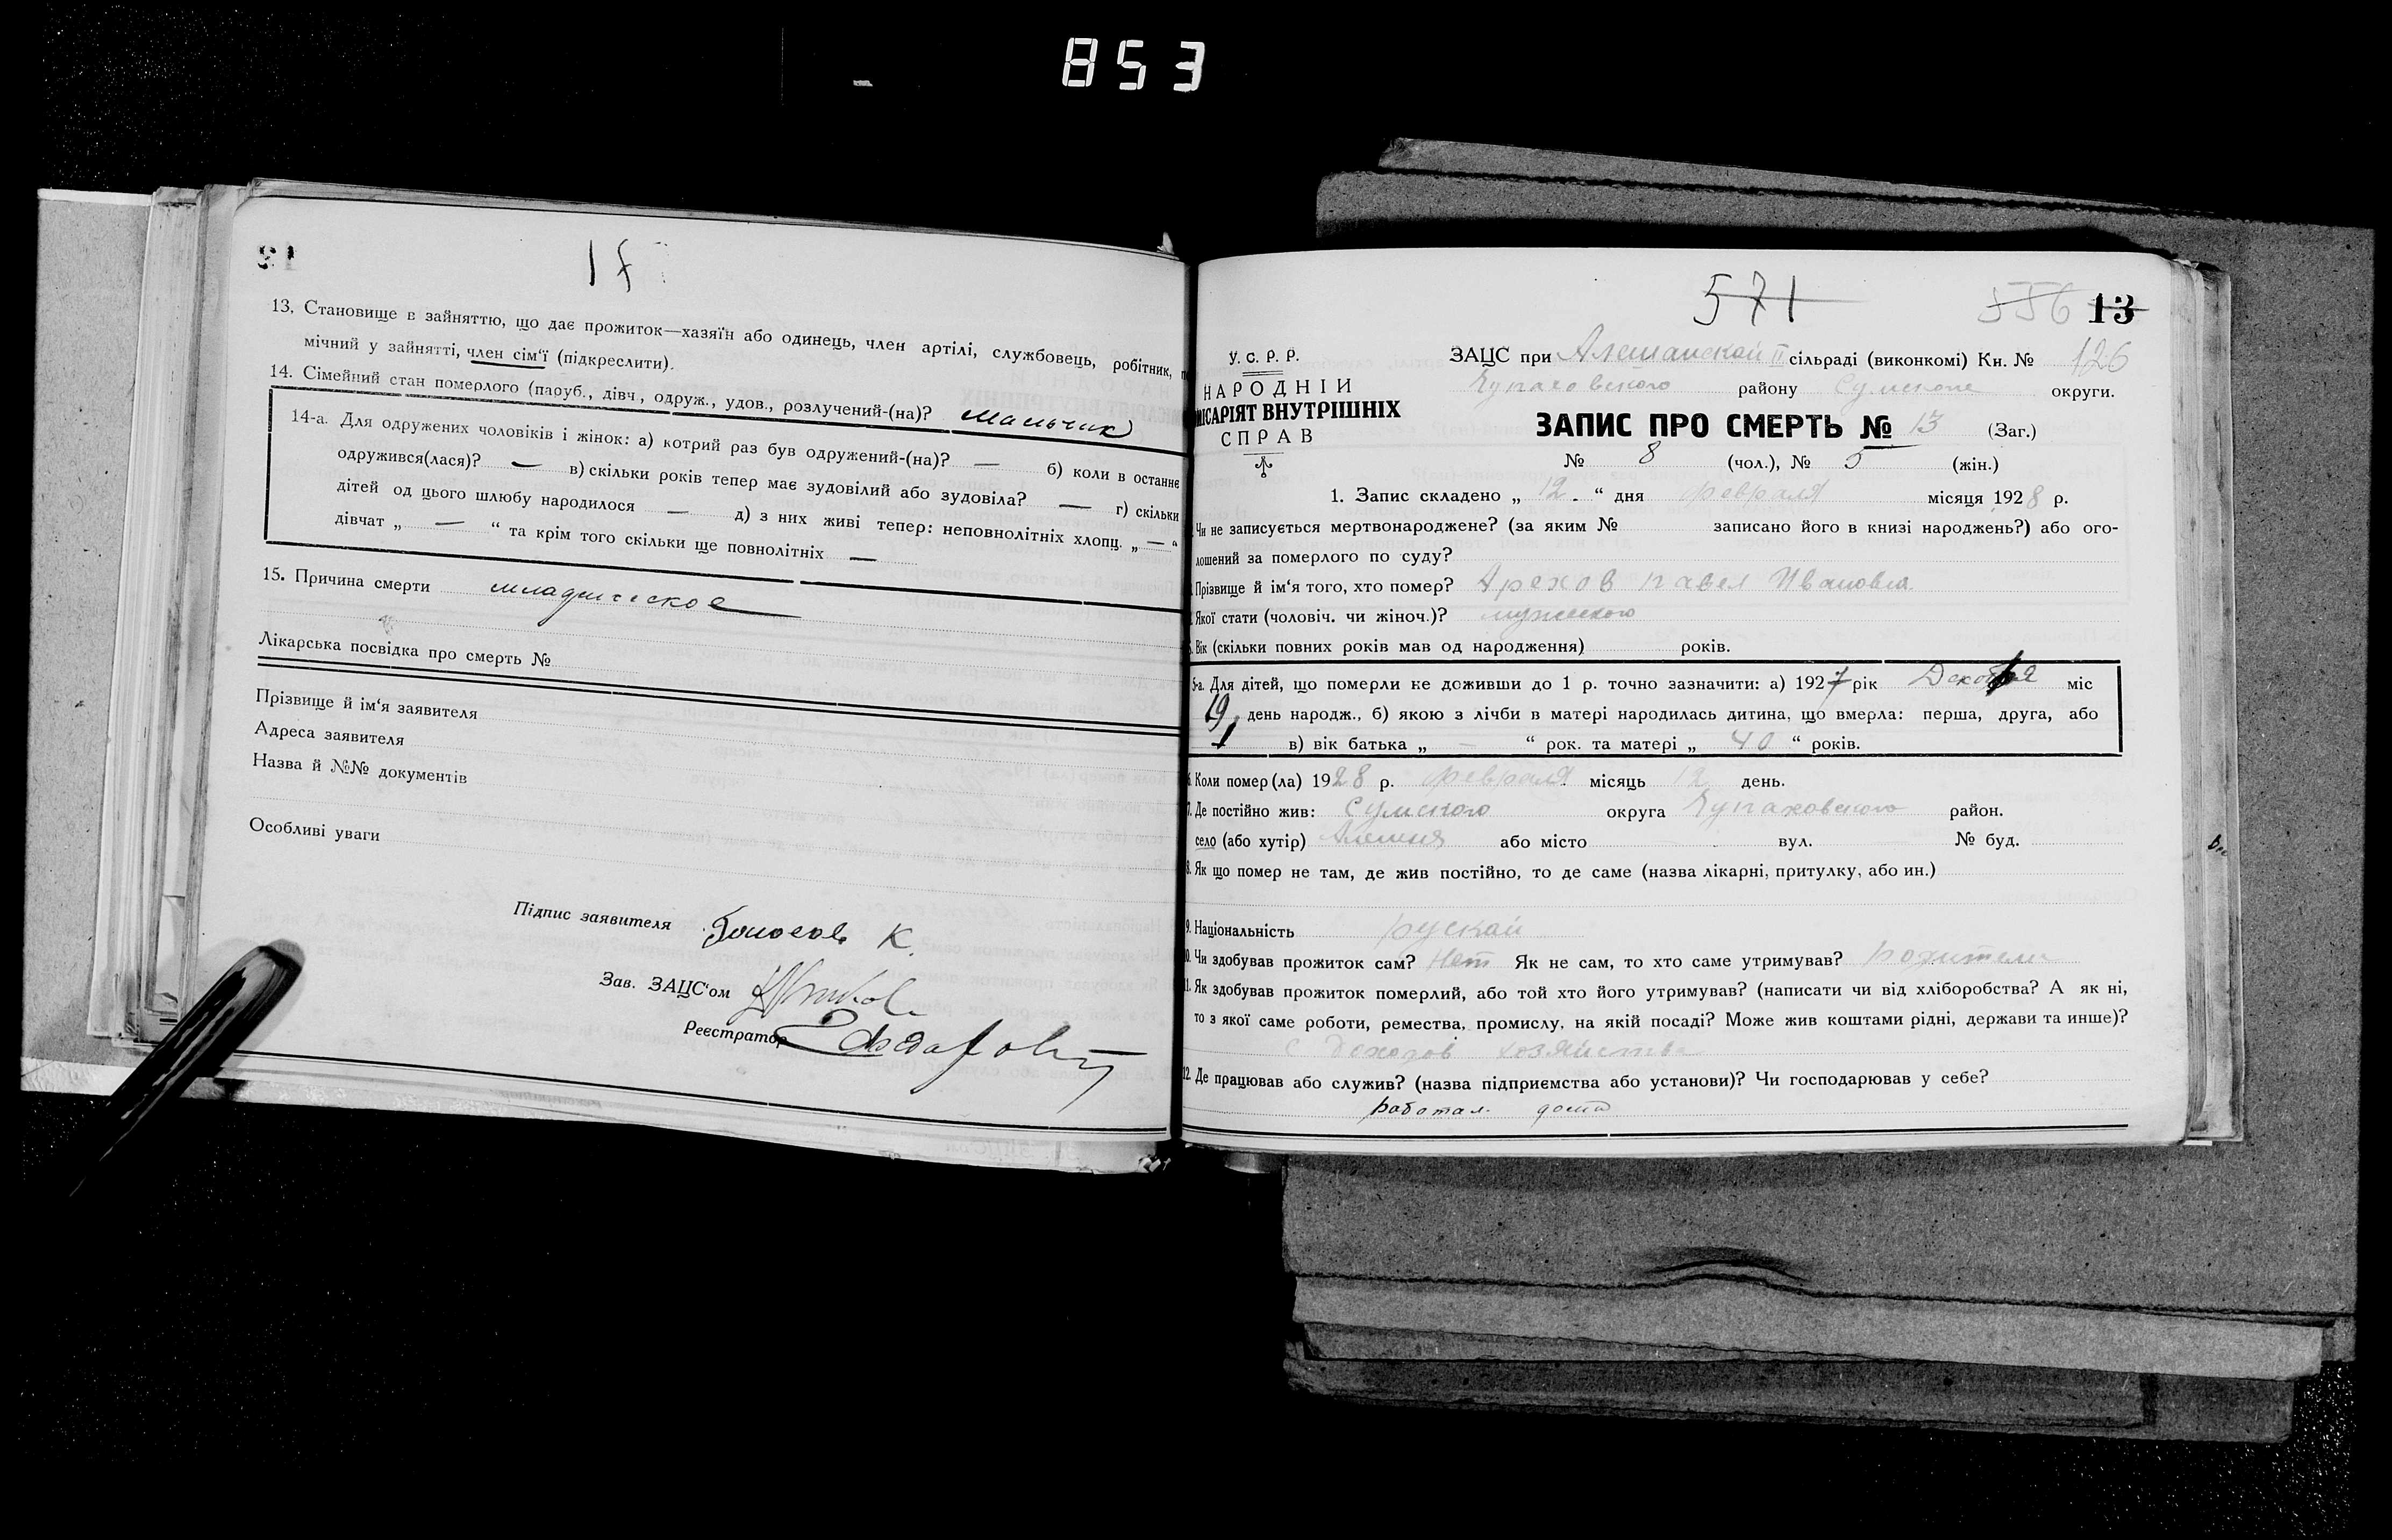 853
13
13. Становище в зайняттю, що дає прожиток—хазяїн або одинець, член артілі, службовець, робітник,
мічний у зайнятті, член сім'ї (підкреслити).
14. Сімейний стан померлого (паруб., дівч., одруж., удов., розлучений-(на)? мальчик
14-а. Для одружених чоловіків і жінок: а) котрий раз був одружений-(на)? — б) коли в останнє
одружився(лася)? — в) скільки років тепер має зудовілий або зудовіла? — г) скільки
дітей од цього шлюбу народилося — д) з них живі тепер: неповнолітніх хлопц. „ — “
дівчат „ — “ та крім того скільки ще повнолітніх —
15. Причина смерти младенческое
Лікарська посвідка про смерть №
Прізвище й ім'я заявителя
Адреса заявителя
Назва й №№ документів
Особливі уваги
Підпис заявителя К.
Зав. ЗАЦС'ом
Реєстратор
571 556 13
У. С. Р. Р.
НАРОДНІЙ
ІСАРІЯТ ВНУТРІШНІХ
СПРАВ
ЗАЦС при Алешанской II сільраді (виконкомі) Кн. № 126
Чупаховского району Сумской округи.
ЗАПИС ПРО СМЕРТЬ № 13 (Заг.)
№ 8 (чол.), № 5 (жін.)
1. Запис складено „ 12. “ дня февраля місяця 1928 р.
Чи не записується мертвонароджене? (за яким № записано його в книзі народжень?) або ого-
лошений за померлого по суду?
Прізвище й ім'я того, хто помер? Арехов Павел Иванович
Якої стати (чоловіч. чи жіноч.)? мужского
Вік (скільки повних років мав од народження) років.
5-а. Для дітей, що померли не доживши до 1 р. точно зазначити: а) 1927 рік Декобря міс
19 день народж., б) якою з лічби в матері народилась дитина, що вмерла: перша, друга, або
1 в) вік батька „ — “ рок. та матері „ 40 “ років.
6. Коли помер(ла) 1928 р. февраля місяць 12 день.
7. Де постійно жив: Сумского округа Чупаховского район.
село (або хутір) Алешня або місто вул. № буд.
8. Як що помер не там, де жив постійно, то де саме (назва лікарні, притулку, або ин.)
9. Національність руской
10. Чи здобував прожиток сам? Нет Як не сам, то хто саме утримував? родители
11. Як здобував прожиток померлий, або той хто його утримував? (написати чи від хліборобства? А як ні,
то з якої саме роботи, ремества, промислу, на якій посаді? Може жив коштами рідні, держави та инше)?
с доходов хозяйства
12. Де працював або служив? (назва підприємства або установи)? Чи господарював у себе?
работал. дома